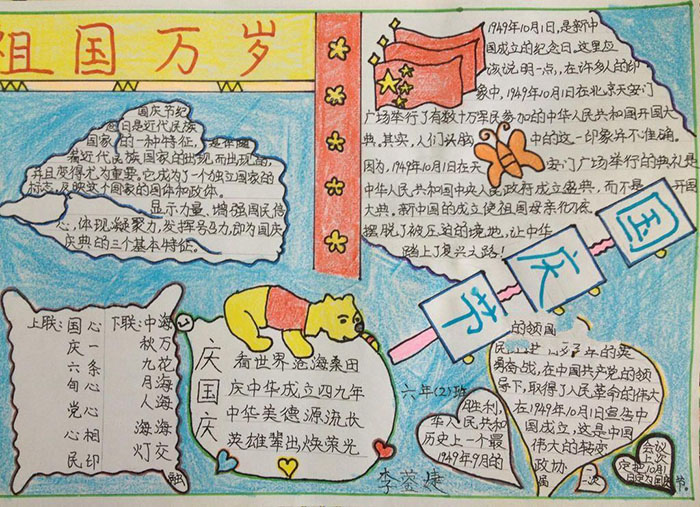 祖国万岁
国庆节纪
念日是近代民族
国家的一种特征，是伴随
着近代民族国家的出现而出现的，
并且变得尤为重要。它成为了一个独立国家的
标志，反映这个国家的国体和政体。
显示力量、增强国民信
心，体现凝聚力，发挥号召力，即为国庆
庆典的三个基本特征。
1949年10月1日，是新中
国成立的纪念日，这里应
该说明一点，，在许多人的印
象中，1949年10月1日在北京天安门
广场举行了有数十万军民参加的中华人民共和国开国大
典。其实，人们头脑中的这一印象并不准确。
因为，1949年10月1日在天安门广场举行的典礼是
中华人民共和国中央人民政府成立盛典，而不是开国
大典。新中国的成立使祖国母亲彻底
摆脱了被压迫的境地，让中华
踏上了复兴之路！
国庆节
上联：国庆六旬党心民
心一条心心相印
下联：中秋九月人海灯
海万花海海交融
庆国庆
看世界沧海桑田
庆中华成立四九年
中华美德源流长
英雄辈出焕荣光
六年（2）班
李蓥婕
胜利，
华人民共和
历史上一个最
1949年9月的
的领国
勇奋战，在中国共产党的领
导下，取得了人民革命的伟大
在1949年10月1日宣告中
国成立，这是中国
伟大的转变
政协
一次
会议
上次
定把10月1